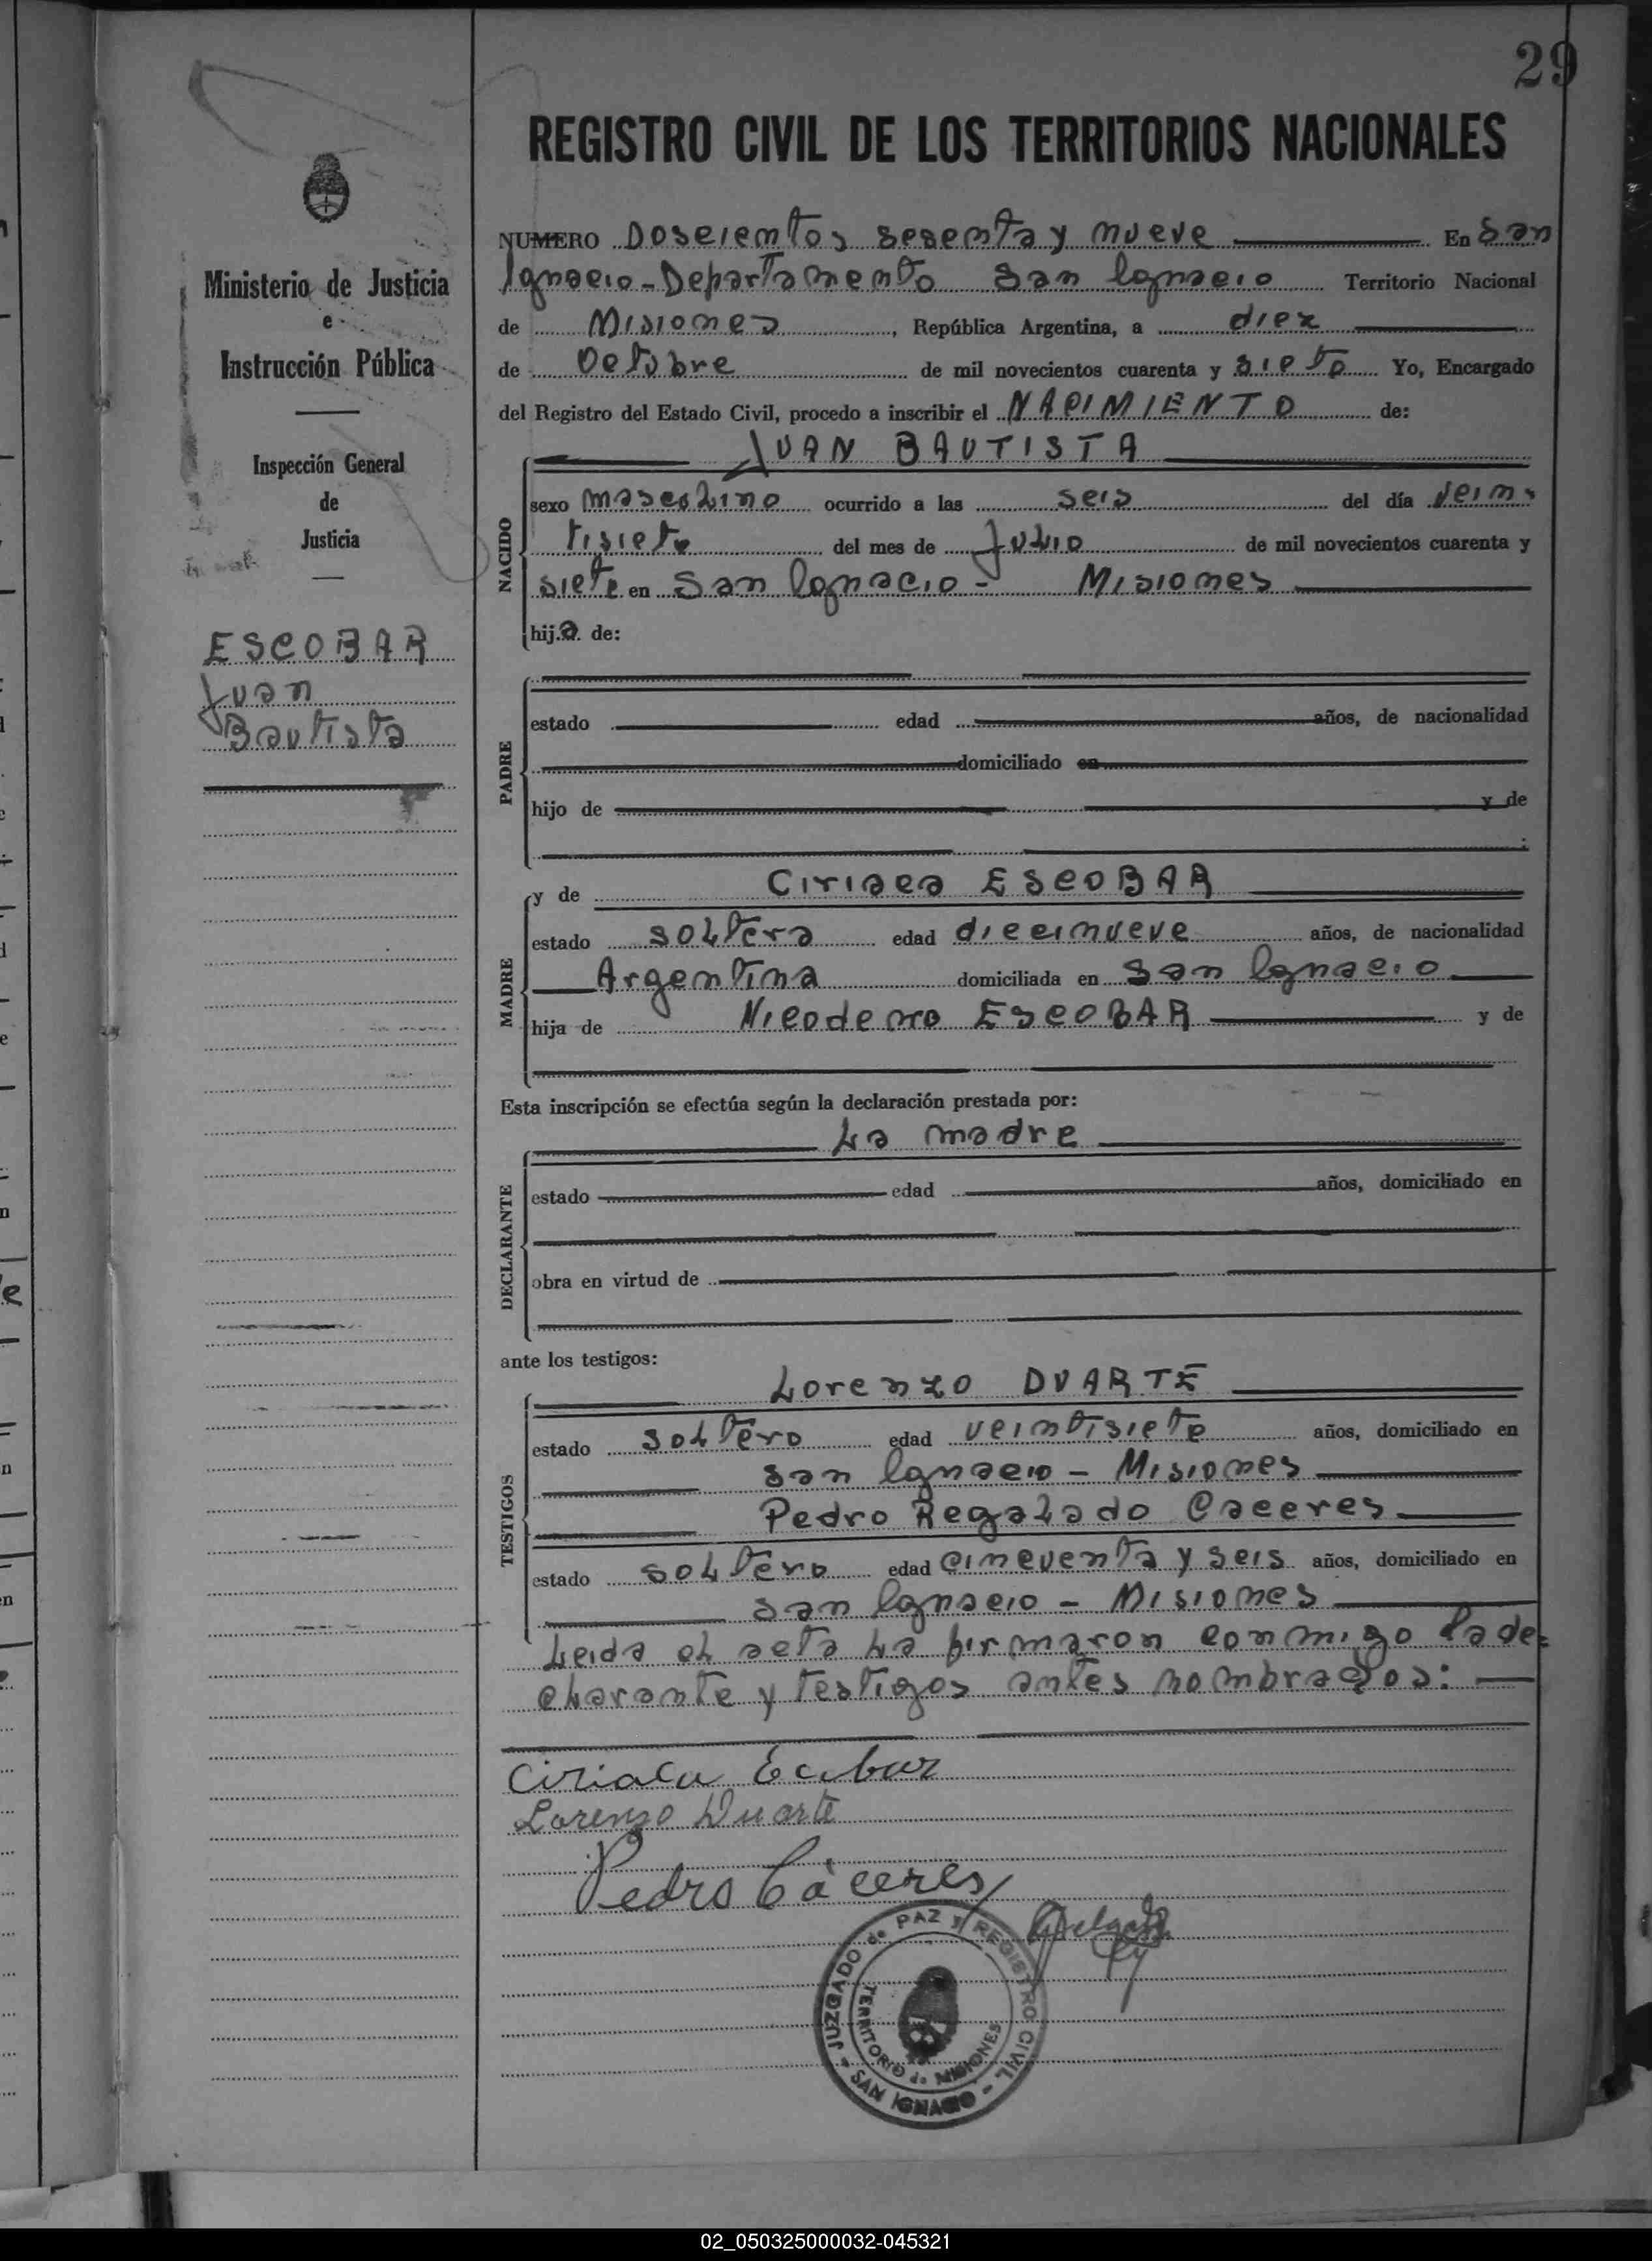 29
REGISTRO CIVIL DE LOS TERRITORIOS NACIONALES
Ministerio de Justicia
e
Instrucción Pública
Inspección General
de
Justicia
ESCOBAR
Juan
Bautista
NUMERO Doscientos sesenta y nueve En San
Ignacio - Departamento San Ignacio Territorio Nacional
de Misiones, República Argentina, a diez
de Octubre de mil novecientos cuarenta y siete Yo, Encargado
del Registro del Estado Civil, procedo a inscribir el NACIMIENTO de:
JUAN BAUTISTA
NACIDO
sexo masculino ocurrido a las seis del día vein-
tisiete del mes de Julio de mil novecientos cuarenta y
siete en San Ignacio - Misiones
hija de:
PADRE
estado edad años, de nacionalidad
domiciliado en
hijo de y de
MADRE
y de Ciriaca ESCOBAR
estado soltera edad diecinueve años, de nacionalidad
Argentina domiciliada en San Ignacio
hija de Nicodemo ESCOBAR y de
Esta inscripción se efectúa según la declaración prestada por:
La madre
DECLARANTE
estado edad años, domiciliado en
obra en virtud de
ante los testigos:
TESTIGOS
Lorenzo DUARTE
estado soltero edad veintisiete años, domiciliado en
San Ignacio - Misiones
Pedro Regalado Caceres
estado soltero edad cincuenta y seis años, domiciliado en
San Ignacio - Misiones
Leida el acta la firmaron conmigo la de=
clarante y testigos antes nombrados:
Ciriaca Ecobar
Lorenzo Duarte
Pedro Cáceres
JUZGADO de PAZ y REGISTRO CIVIL - SAN IGNACIO -
TERRITORIO de MISIONES
02_050325000032-045321